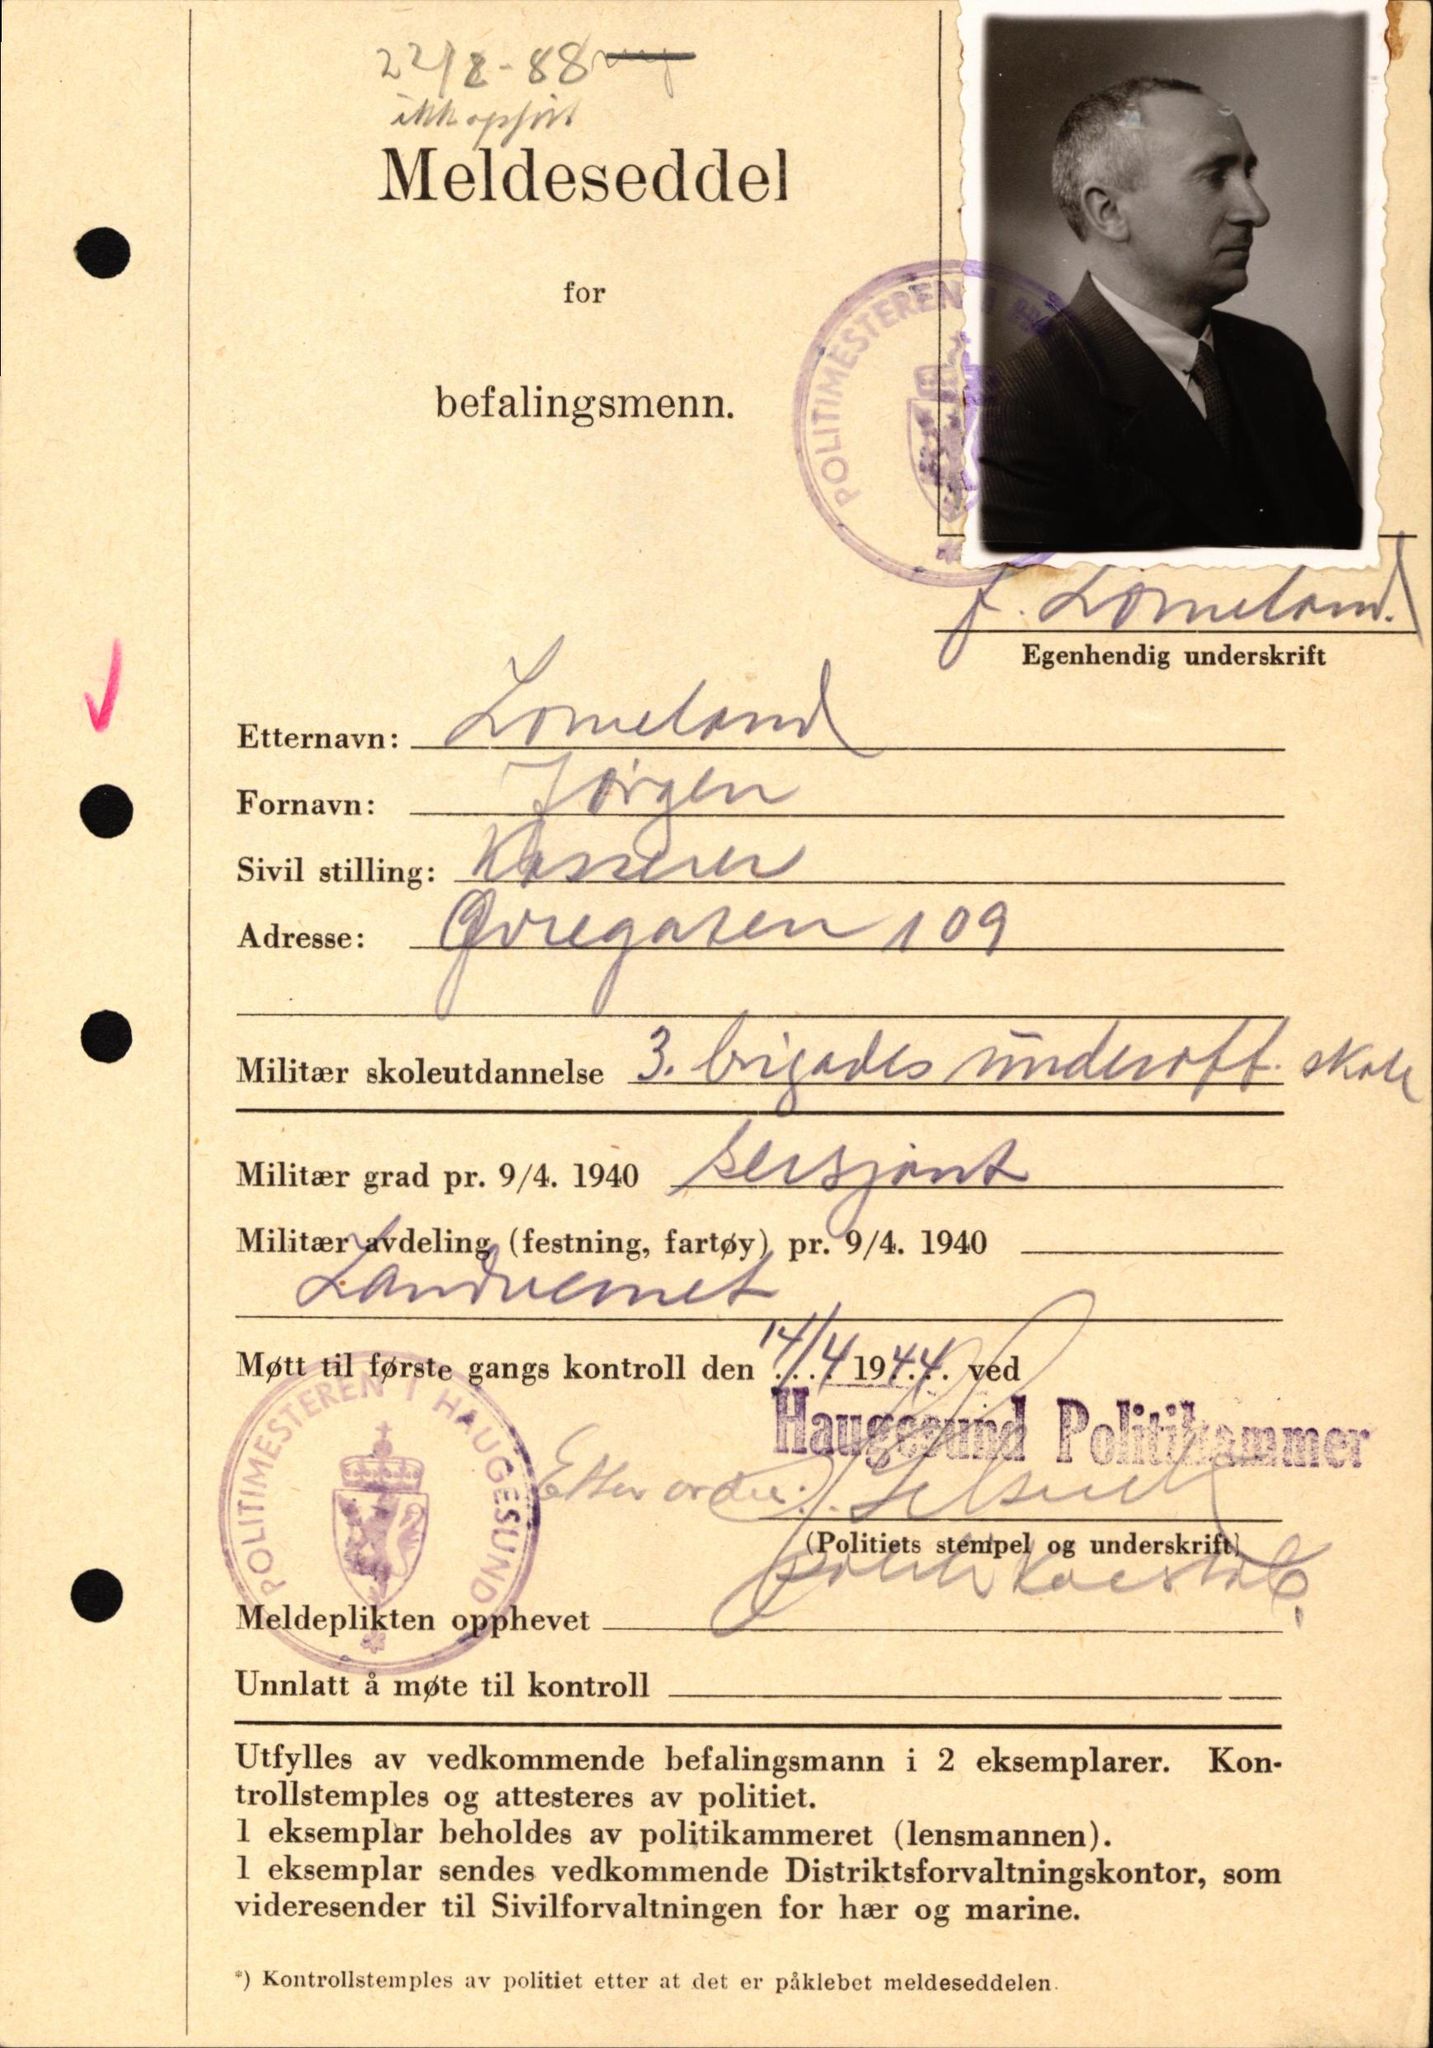 22/8-88
ikke opført
Meldeseddel
for
befalingsmenn.
POLITIMESTEREN I HA
J. Lomeland.
Egenhendig underskrift
Etternavn: Lomeland
Fornavn: Jørgen
Sivil stilling: Kasserer
Adresse: Øvregaten 109
Militær skoleutdannelse 3. brigades underoff. skole
Militær grad pr. 9/4. 1940 sersjant
Militær avdeling (festning, fartøy) pr. 9/4. 1940
Landvernet
Møtt til første gangs kontroll den 14/4 1944. ved
Haugesund Politikammer
POLITIMESTEREN I HAUGESUND
Etter ordre:
(Politiets stempel og underskrift)
Meldeplikten opphevet
Unnlatt å møte til kontroll
Utfylles av vedkommende befalingsmann i 2 eksemplarer. Kon-
trollstemples og attesteres av politiet.
1 eksemplar beholdes av politikammeret (lensmannen).
1 eksemplar sendes vedkommende Distriktsforvaltningskontor, som
videresender til Sivilforvaltningen for hær og marine.
*) Kontrollstemples av politiet etter at det er påklebet meldeseddelen.